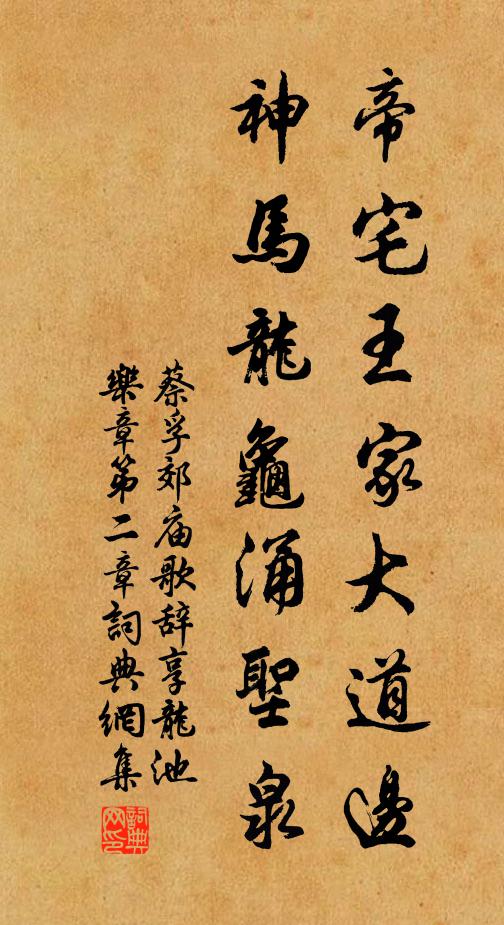 帝宅王家大道邊
神馬龍龜涌聖泉
蔡孚郊庙歌辞享龍池
樂章第二章詞典網集
詞典
网印